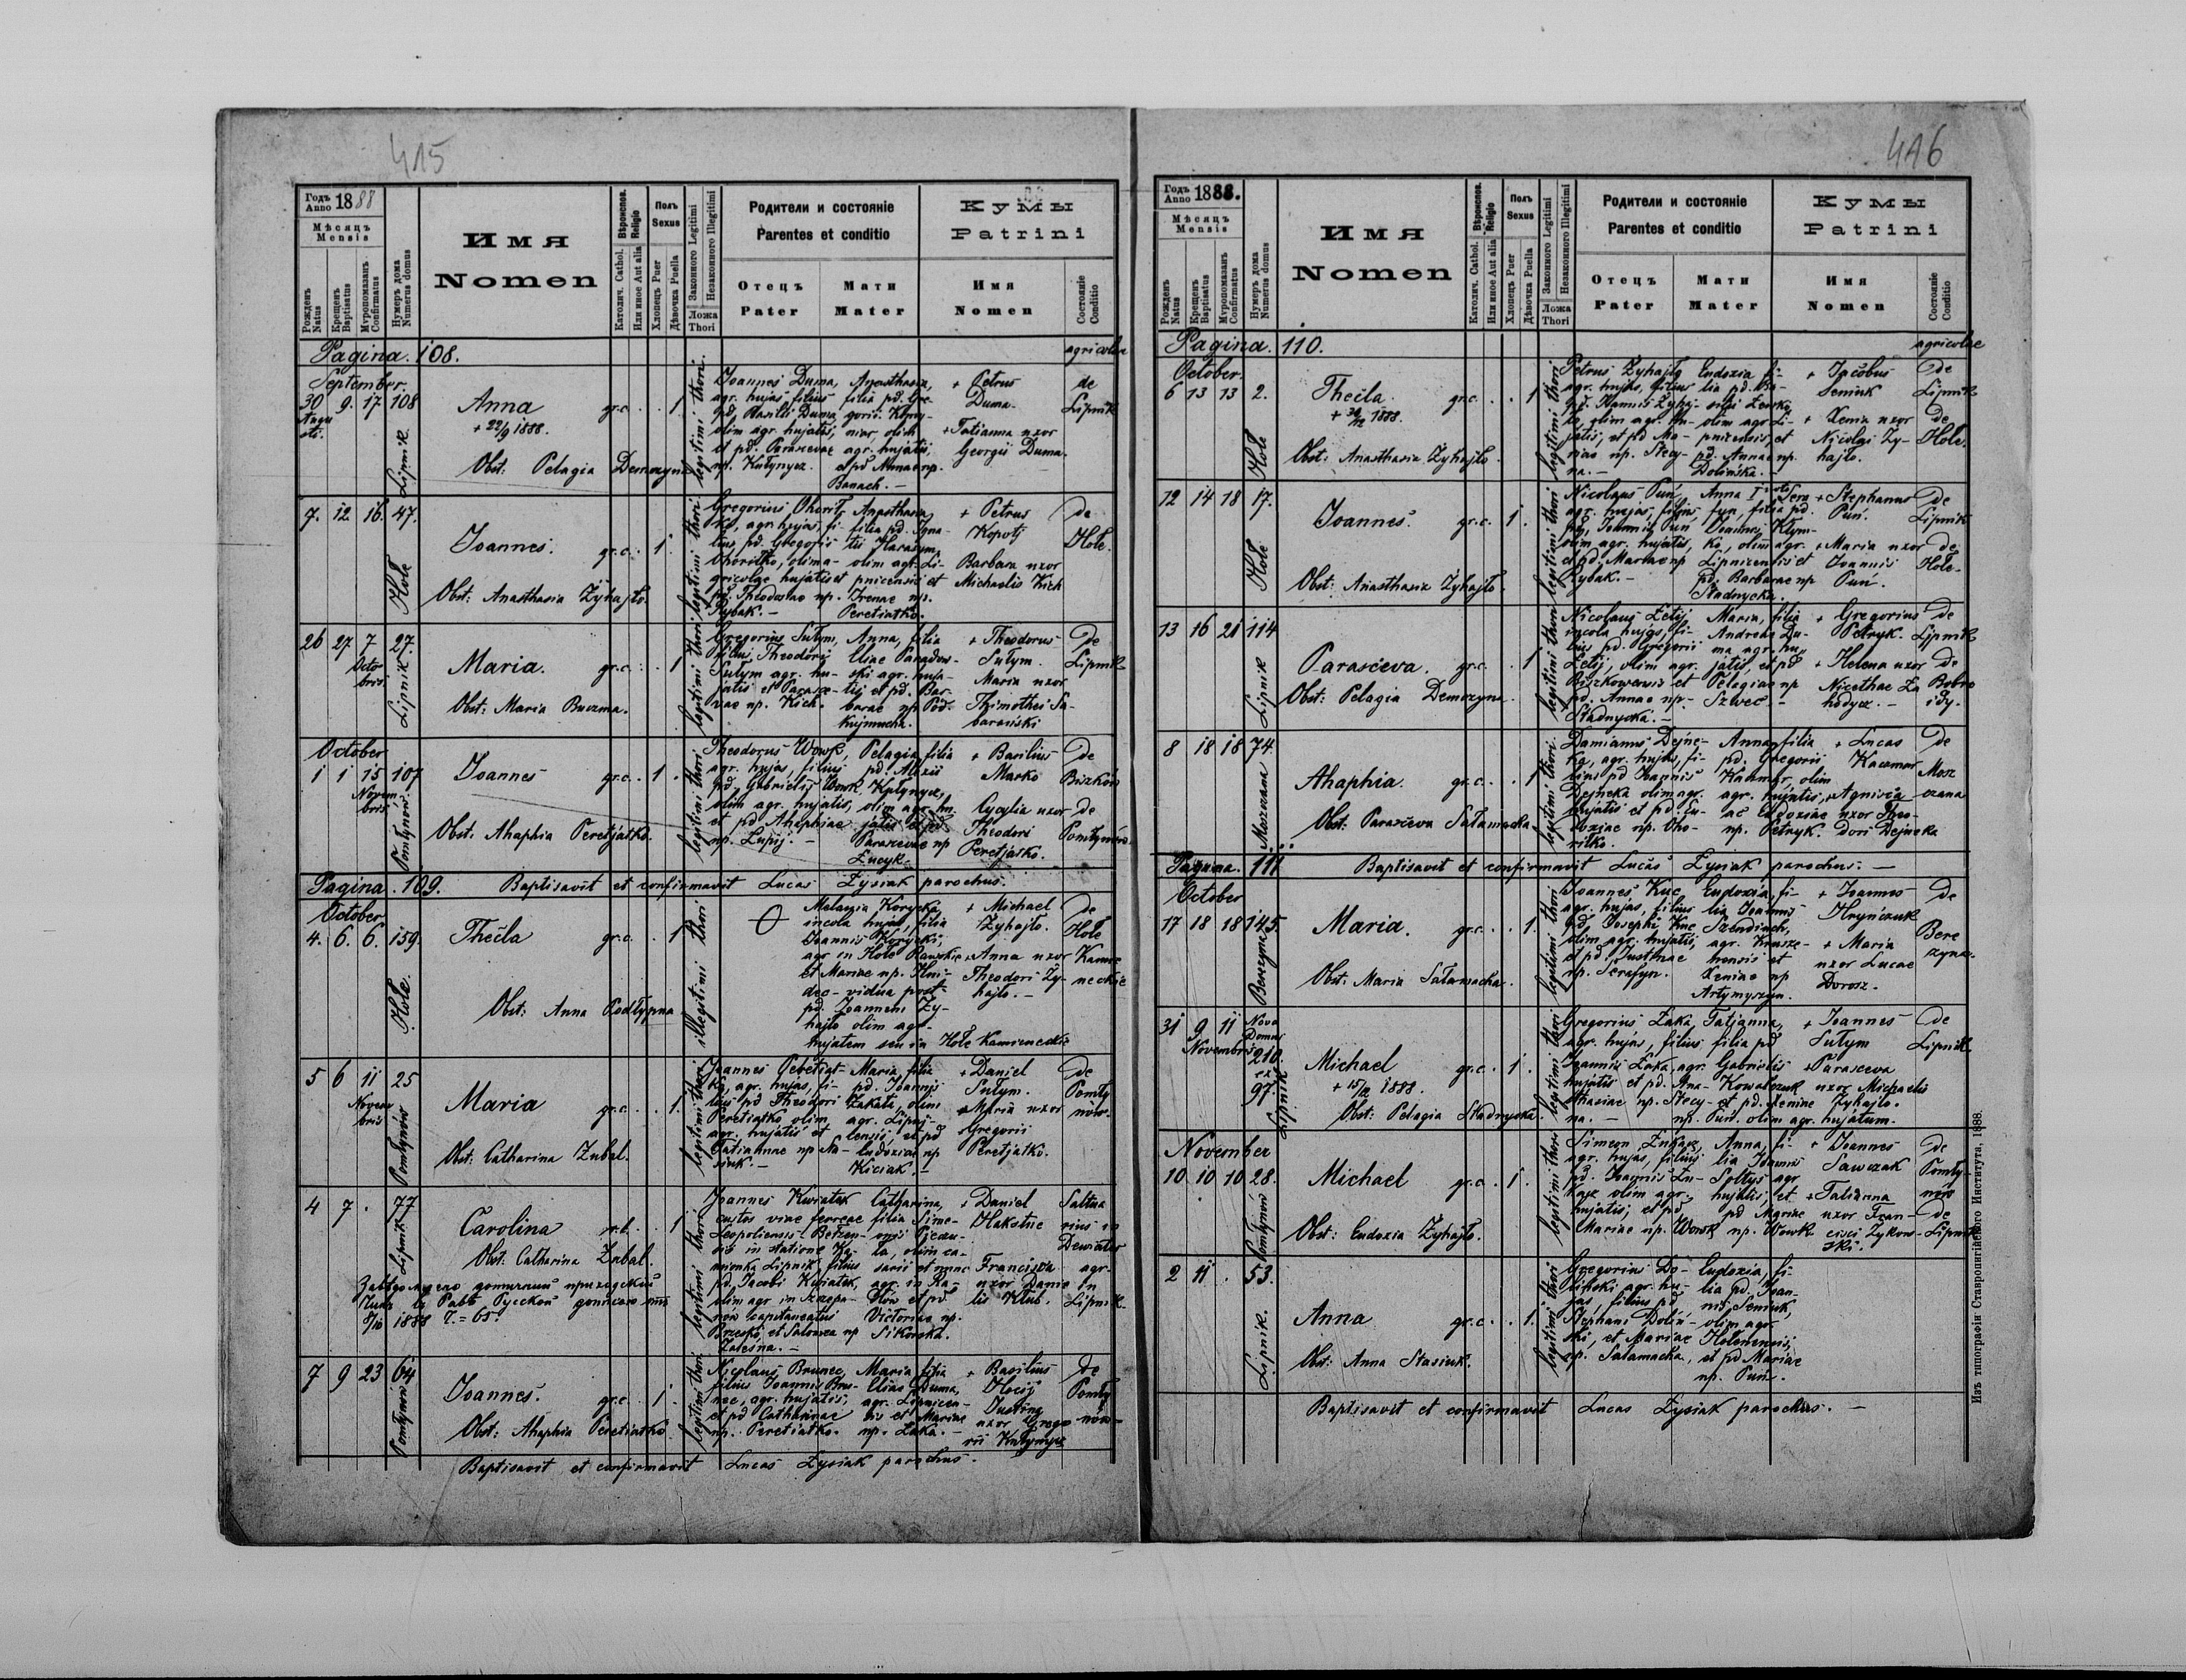 415
Годъ Anno 1888
Мѣсяцъ
Mensis
Рожденъ Natus
Крещенъ Baptisatus
Муропомазанъ Confirmatus
Нумеръ дома Numerus domus
Имя
Nomen
Вѣроиспов. Religio
Католич. Cathol.
Или иное Aut alia
Полъ
Sexus
Хлопецъ Puer
Дѣвочка Puella
Законного Legitimi
Незаконного Illegitimi
Ложа
Thori
Родители и состоянiе
Parentes et conditio
Отецъ
Pater
Мати
Mater
Кумы
Patrini
Имя
Nomen
Состоянiе
Conditio
Pagina. 108.
agricolae
September.
30 9. 17 108
Lipnik
Anna
+ 22/9 1888.
gr.c. . . 1
Obst: Pelagia Demczyna
legitimi thori
Joannes Duma,
agr. hujas filius
pd. Basilii Duma
olim agr. hujatis,
et pd. Parascevae
np. Kułynycz.
Anasthasia,
filia pd. Gre-
gorii
olim
agr. hujatis,
et pd Annae np.
Banach. —
+ Petrus
Duma.
+ Tatianna uxor
Georgii Duma.
de
Lipnik
7. 12 16. 47.
Hole
Joannes.
gr.c. . 1.
Obst: Anasthasia Żyhajło.
legitimi thori
Gregorius Ohorit
ko, agr. hujas, fi-
lius pd. Gregorii
Ohoritko, olim a-
gricolae hujatis et
pd. Theodosiae np.
Rybak. —
Anasthasia
filia pd. Igna-
tii Harasym,
olim agr. Li-
pnicensis et
Irenae np.
Peretiatko.
+ Petrus
Kopotj
Barbara uxor
Michaelis Kich
de
Hole.
26 27 7 27.
Octo
bris
Lipnik
Maria.
gr.c. . . 1
Obst: Maria Buczma.
legitimi thori
Gregorius Sułym,
filius Theodori
Sułym agr. hu-
jatis et Parasce-
vae np. Kich.
Anna, filia
Eliae Paradow-
ski agr. huja-
tis et pd. Bar-
barae np Pod-
kujmucha.
+ Theodorus
Sułym.
Maria uxor
Thimothei Sa-
barański
De
Lipnik
October
1 1 15 107
Novem
bris
Pomłynów
Joannes
gr.c. . 1 .
Obst. Ahaphia Peretjatko.
legitimi thori
Theodorus Wowk,
agr. hujas, filius
pd. Gabrielis Wowk
olim agr. hujatis,
et pd Ahaphiae
np. Lupij. —
Pelagia filia
pd. Alexii
Kułynycz,
olim agr. hu
jatis et pd
Parascevae np
Łucyk.
+ Basilius
Marko
Cecylia uxor
Theodori
Peretjatko.
De
Biszków
de
Pomłynów
Pagina. 109. Baptisavit et confirmavit Lucas Łysiak parochus.
October
4. 6. 6. 159.
Hole.
Thecla
gr.c. . . 1
Obst: Anna Podłypna
illegitimi thori
Malazia Korycka,
incola hujas, filia
Joannis Korycki,
agr in Hole Rawskie
et Mariae np. Hni-
deo- vidua post
pd. Joannem Ży-
hajło olim agr-
hujatem seu in Hole Kamieneckie
+ Michael
Żyhajło.
+ Anna uxor
Theodori Ży-
hajło. —
De
Hole
Kamie
neckie
5 6 11 25
Novem
bris
Pomłynów
Maria
gr.c. . . 1.
Obst: Catharina Zubal.
legitimi thori
Joannes Peretiat-
ko, agr. hujas, fi-
lius pd Theodori
Peretiatko olim
agr. hujatis et
Tatiannae np Sa-
siuk. —
Maria filia
pd. Joannis
Zakała, olim
agr. Lipnj-
censis, et pd
Eudoxiae np
Kiciak. —
+ Daniel
Sułym.
+ Maria uxor
Gregorii
Peretjatko.
De
Pomły
nów
4 7 . 77
Lipnik
Carolina
r.l. . . 1
Obst. Catharina Zubal.
legitimi thori
Joannes Kwiatek
custos viae ferreae
Leopoliensis-Bełzen-
sis in statione Ka-
mionka Lipnik filius
pd. Jacobi Kwiatek,
olim agr in Szczepa-
nów capitaneatus
Brzesko, et Salomea np
Zalesna. —
Catharina,
filia Sime-
onis
olim ca-
sarii et nunc
agr. in Ra-
et pd.
Victoriae np.
Sikorska.
+ Daniel
Hakalue
Francisca
uxor Danie
lis Kłub.
Saltua
rius in
Dewiatyr
agr-
in
Lipnik
1888
7 9 23 64
Pomłynów
Joannes.
gr.c. . 1.
Obst: Ahaphia Peretiatko
legitimi thori
Nicolaus Brunec,
filius Joannis Bru-
nec, agr. hujatis;
et pd Catharinae
np. Peretiatko.
Maria filia
Eliae Duma,
agr. Lipnicen-
sis et Mariae
np. Łaka. —
+ Basilius
Hocij
Justina
uxor Grego
rii Kułynycz
De
Pomły
nów-
Baptisavit et confirmavit Lucas Łysiak parochus.
416
Годъ Anno 1888.
Мѣсяцъ
Mensis
Рожденъ Natus
Крещенъ Baptisatus
Муропомазанъ Confirmatus
Нумеръ дома Numerus domus
Имя
Nomen
Вѣроиспов. Religio
Католич. Cathol.
Или иное Aut alia
Полъ
Sexus
Хлопецъ Puer
Дѣвочка Puella
Законного Legitimi
Незаконного Illegitimi
Ложа
Thori
Родители и состоянiе
Parentes et conditio
Отецъ
Pater
Мати
Mater
Кумы
Patrini
Имя
Nomen
Состоянiе
Conditio
Pagina. 110.
agricolae
October.
6 13 13 2.
Hole
Thecla.
1888.
gr.c. . . 1
Obst: Anasthasia Żyhajło.
legitimi thori
Petrus Żyhajło
agr. hujas, filius
pd. Joannis Żyhaj-
ło, olim agr. hu-
jatis, et pd Ma-
riae np. Stecy-
na. —
Eudoxia fi-
lia pd. Ba-
silii Zenko,
olim agr Li-
pnicensis, et
pd. Annae np.
Dolińska. —
+ Jacobus
Seniuk
+ Xenia uxor
Nicolai Ży-
hajło.
De
Lipnik
De
Hole.
12 14 18 17.
Hole
Joannes.
gr.c. . 1 .
Obst: Anasthasia Żyhajło.
legitimi thori
Nicolaus Puń,
agr. hujas, filius
pd. Joannis Puń
olim agr. hujatis,
et pd. Mariae np
Rybak. —
Anna
filia pd.
Joannis Kłym-
ko, olim agr.
Lipnicensis et
pd. Barbarae np
Stadnycka.
+ Stephanus
Puń.
+ Maria uxor
Joannis
Puń.
De
Lipnik
de
Hole-
13 16 21 114
Lipnik
Parasceva.
gr.c. . . 1
Obst: Pelagia Demczyna.
legitimi thori
Nicolaus Zetij
incola hujas, fi-
lius pd. Gregorii
Zetij, olim agr.
Biszkowensis et
pd. Annae np-
Stadnycka. —
Maria, filia
Andreae Du-
ma agr. hu-
jatis, et pd
Pelagiae np
Szwec. —
+ Gregorius
Petryk.
+ Helena uxor
Nicethae Za
hodycz. —
De
Lipnik
de
Bobro
idy.
8 18 18 74.
Moszczana
Ahaphia.
gr.c. . . 1
Obst: Parasceva Sałamacka.
legitimi thori
Damianus Dejne-
ka, agr. hujas, fi-
lius pd Joannis
Dejneka olim agr.
hujatis et pd. Eu-
doxiae np. Oho-
ritko.
Anna filia
pd. Gregorii
Kaczmar, olim
agr. hujatis,
ac Eudoxiae
np. Petryk.
+ Lucas
Kaczmar
+ Agnieza
uxor Theo-
dori Dejneka
De
Mosz
czana
Pagina. 111 Baptisavit et confirmavit Lucas Łysiak parochus. —
October
17 18 18 145.
Berezyna
Maria.
gr.c. . . 1.
Obst: Maria Sałamacha.
legitimi thori
Joannes Kuc
agr. hujas, filius
pd Josephi Kuc
olim agr. hujatis,
et pd Justinae
np. Serafyn.
Eudoxia, fi-
lia Joannis
Szendiuch,
agr. Krusze-
hensis et
Xeniae np
Artymyszyn.
+ Joannes
Hryńczuk
+ Maria
uxor Lucae
Dorosz-
De
Bere
zyna-
31 9 11
Novembris
Nova
Domus
210.
ex
97.
Lipnik
Michael
+ 15/12 1888.
gr.c. . 1 .
Obst: Pelagia Stadnycka
legitimi thori
Gregorius Łaka
agr. hujas, filius
Joannis Łaka, agr.
hujatis et pd. Ana-
sthasiae np. Stecy-
na. —
Tatjanna,
filia pd
Gabrielis
Kowalczuk
et pd. Xeniae
np. Puń. olim agr. hujatum.
+ Joannes
Sułym
+ Parasceva
uxor Michaelis
Żyhajło.
De
Lipnik
November
10 10 10 28.
Pomłynów
Michael
gr.c. . 1 .
Obst: Eudoxia Żyhajło.
legitimi thori
Simeon Łukacz,
agr. hujas, filius
pd. Joannis Łu-
kacz olim agr.
hujatis, et pd
Mariae np. Wowk
Anna, fi-
lia Joannis
Sołtys agr
hujatis, et
pd Mariae
np. Wowk
+ Joannes
Sawczak
+ Tatianna
uxor Fran-
cisci Żykow-
ski.
de
Pomły-
nów
De
Lipnik
2 11 . 53.
Lipnik.
Anna
gr.c. . . 1.
Obst: Anna Stasiuk.
legitimi thori
Gregorius Do-
liński agr. hu-
jas, filius pd
Stephani Doliń-
ski, et Mariae
np. Sałamacha,
Eudoxia, fi-
lia pd. Joan-
nis Seniuk,
olim agr.
Holenensis,
et pd Mariae
np. Puń.
Baptisavit et confirmavit Lucas Łysiak parochus. —
Изъ типографiи Ставропигiйского Института, 1888.